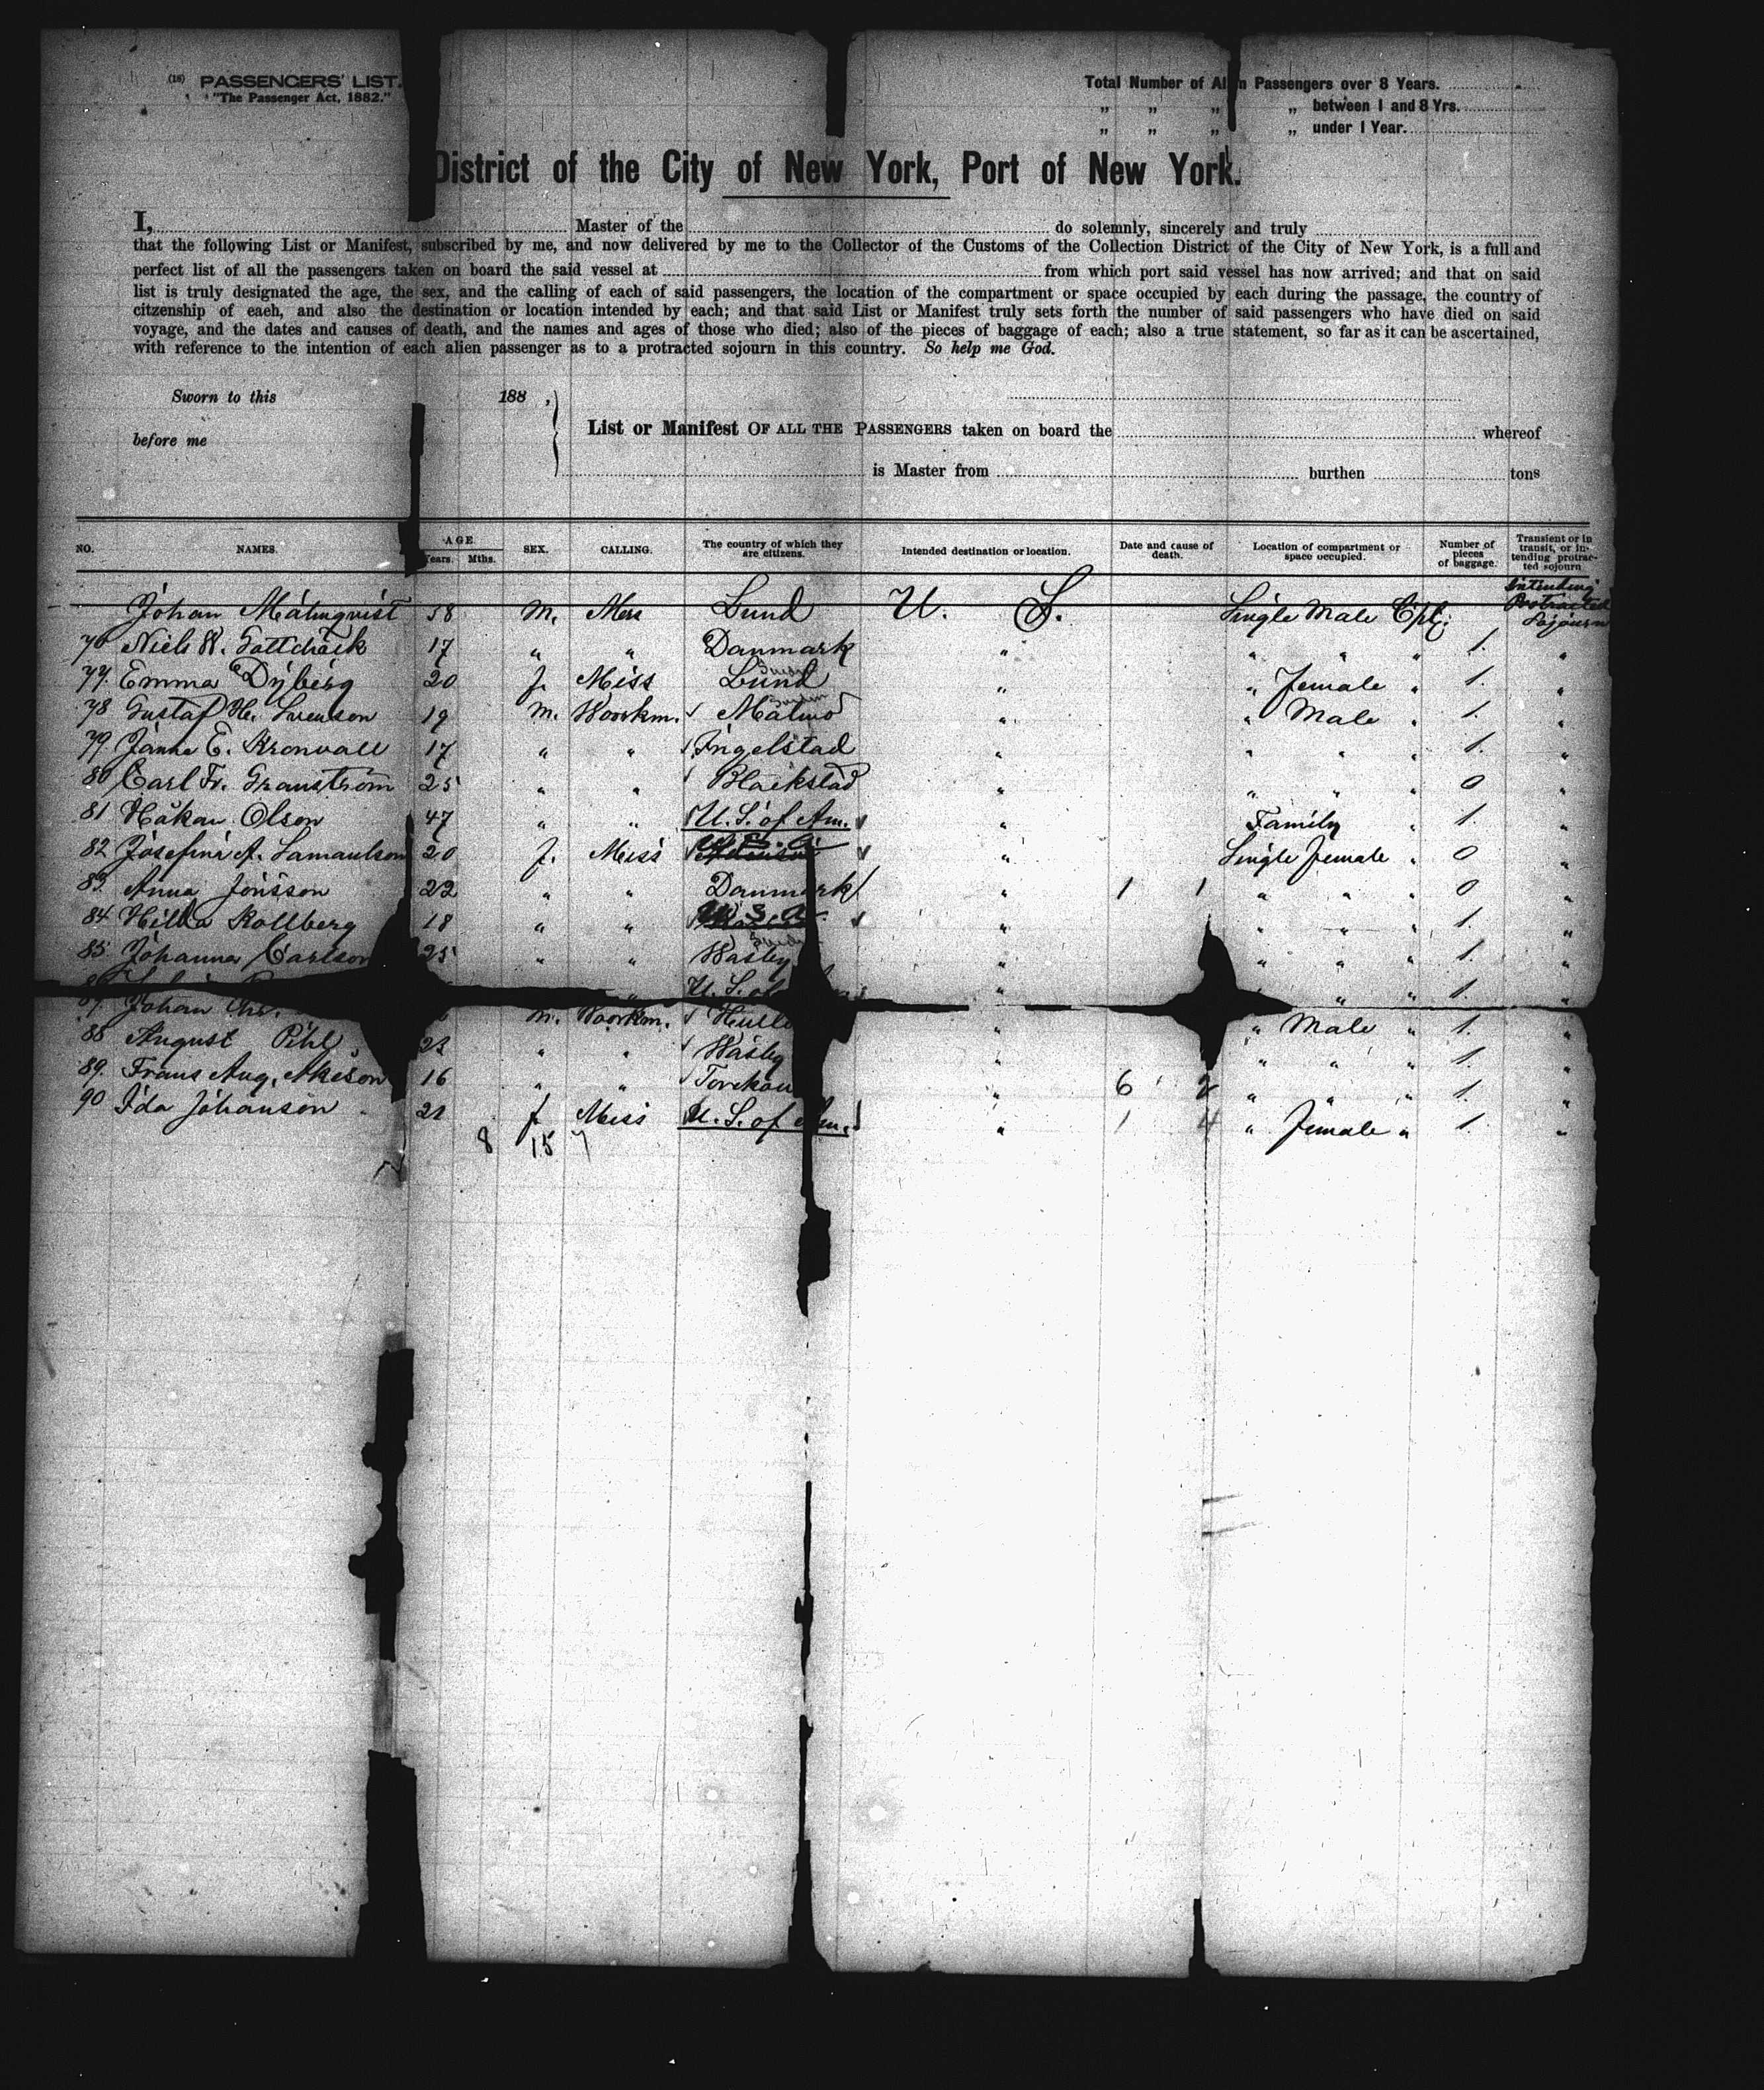 (18) PASSENGERS' LIST. Total Number of Alien Passengers over 8 Years.
"The Passenger Act, 1882." „ „ „ „ between 1 and 8 Yrs.
„ „ „ „ under 1 Year.
District of the City of New York, Port of New York.
I, Master of the do solemnly, sincerely and truly
that the following List or Manifest, subscribed by me, and now delivered by me to the Collector of the Customs of the Collection District of the City of New York, is a full and
perfect list of all the passengers taken on board the said vessel at from which port said vessel has now arrived; and that on said
list is truly designated the age, the sex, and the calling of each of said passengers, the location of the compartment or space occupied by each during the passage, the country of
citzenship of eaeh, and also the destination or location intended by each; and that said List or Manifest truly sets forth the number of said passengers who have died on said
voyage, and the dates and causes of death, and the names and ages of those who died; also of the pieces of baggage of each; also a true statement, so far as it can be ascertained,
with reference to the intention of each alien passenger as to a protracted sojourn in this country. So help me God.
Sworn to this 188 ,
before me List or Manifest OF ALL THE PASSENGERS taken on board the whereof
is Master from burthen tons
NO. NAMES. AGE Years. Mths. SEX. CALLING. The country of which they are citizens. Intended destination or location. Date and cause of death. Location of compartment or space occupied. Number of pieces of baggage. Transient or in transit, or intending protracted sojourn
Johan Malmqvist 38 m. Men Lund U. S. Single Male Cpt. Intending Protracted Sojourn
76 Niels 17 „ „ Danmark „ „ „ „ 1. „
77. Emma Dyberg 20 f. Miss Lund „ „ Female „ 1. „
78 Gustaf H. Svenson 19 m. Woorkm. Malmö „ „ Male „ 1. „
79 Janne E. Kronvall 17 „ „ Ingelstad „ „ „ „ 1. „
80 Carl Fr. Granström 25 „ „ Blackstad „ „ „ „ 0 „
81 Håkan Olson 47 „ „ U. S. of Am. „ Family „ 1. „
82 Josefina A. Samuulson 20 f. Miss „ Single female „ 0 „
83. Anna Jönsson 22 „ „ Danmark „ 1 1 „ „ „ 0 „
84 Hilda Kollberg 18 „ „ U. S. A. „ „ „ „ 1. „
85 Johanna Carlson 25 „ „ Wasby „ „ „ „ 1. „
86 „ U. S. of „ „ „ „ 1. „
87. Johan m. Woorkm. „ „ Male „ 1. „
88 August Pihl 23 „ „ Wasby „ „ „ „ 1. „
89. Frans Aug. Akeson 16 „ „ Torekou „ 6 2 „ „ „ 1. „
90 Ida Johanson 21 f Miss U. S. of Am. „ 1 4 „ female „ 1. „
8 15 7